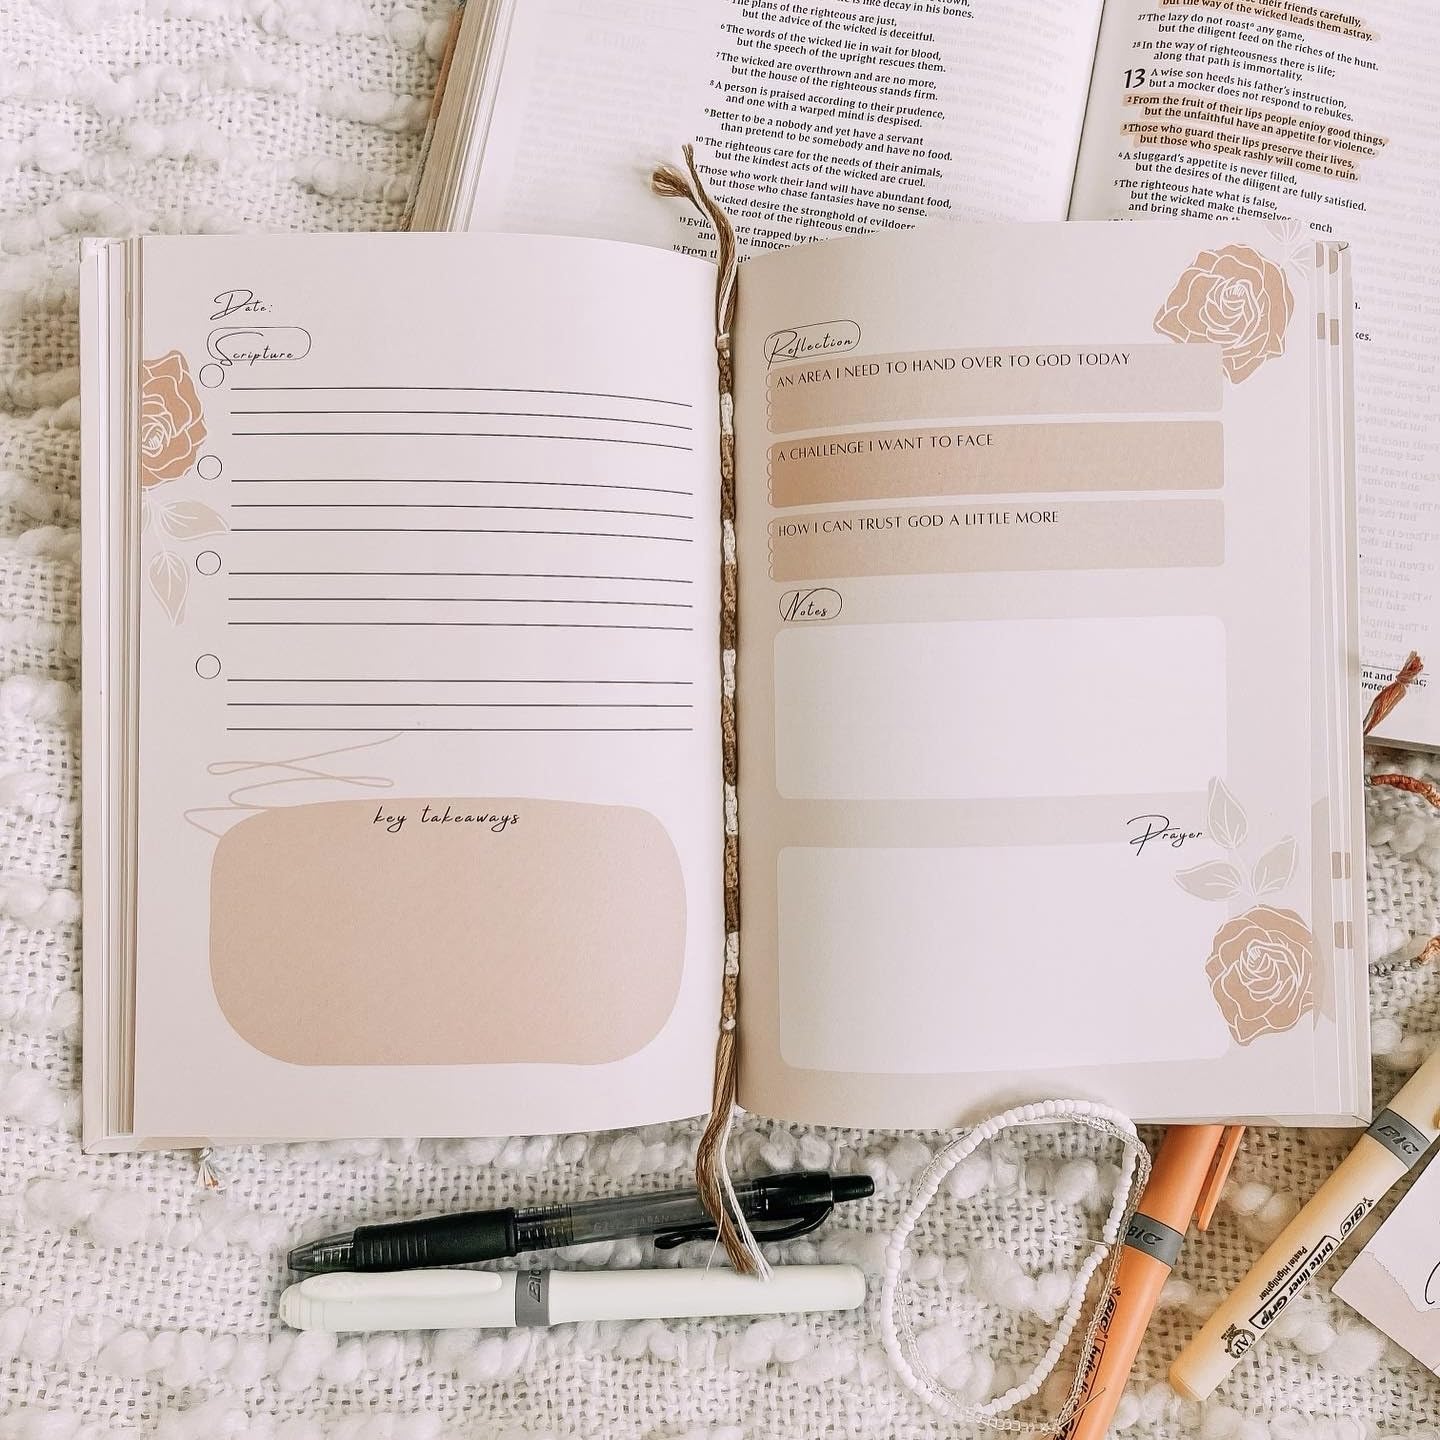 is like decay in his bones.
The plans of the righteous are just,
but the advice of the wicked is deceitful.
6 The words of the wicked lie in wait for blood,
but the speech of the upright rescues them.
7 The wicked are overthrown and are no more,
but the house of the righteous stands firm.
8 A person is praised according to their prudence,
and one with a warped mind is despised.
9 Better to be a nobody and yet have a servant
than pretend to be somebody and have no food.
10 The righteous care for the needs of their animals,
but the kindest acts of the wicked are cruel.
Those who work their land will have abundant food,
but those who chase fantasies have no sense.
wicked desire the stronghold of evildoers
the root of the righteous
13 are trapped by
the innocen
14 From th
their friends carefully,
but the way of the wicked leads them astray.
27 The lazy do not roast any game,
but the diligent feed on the riches of the hunt.
28 In the way of righteousness there is life;
along that path is immortality.
13 A wise son heeds his father's instruction,
but a mocker does not respond to rebukes.
2 From the fruit of their lips people enjoy good things,
but the unfaithful have an appetite for violence.
3 Those who guard their lips preserve their lives,
but those who speak rashly will come to ruin.
4 A sluggard's appetite is never filled,
but the desires of the diligent are fully satisfied.
5 The righteous hate what is false,
but the wicked make themselves
and bring shame on
Date:
Scripture
key takeaways
Reflection
AN AREA I NEED TO HAND OVER TO GOD TODAY
A CHALLENGE I WANT TO FACE
HOW I CAN TRUST GOD A LITTLE MORE
Notes
Prayer
BIC
BIC
BIC
BIC
BIC brite liner Grip
Pastel Highlighter
AP